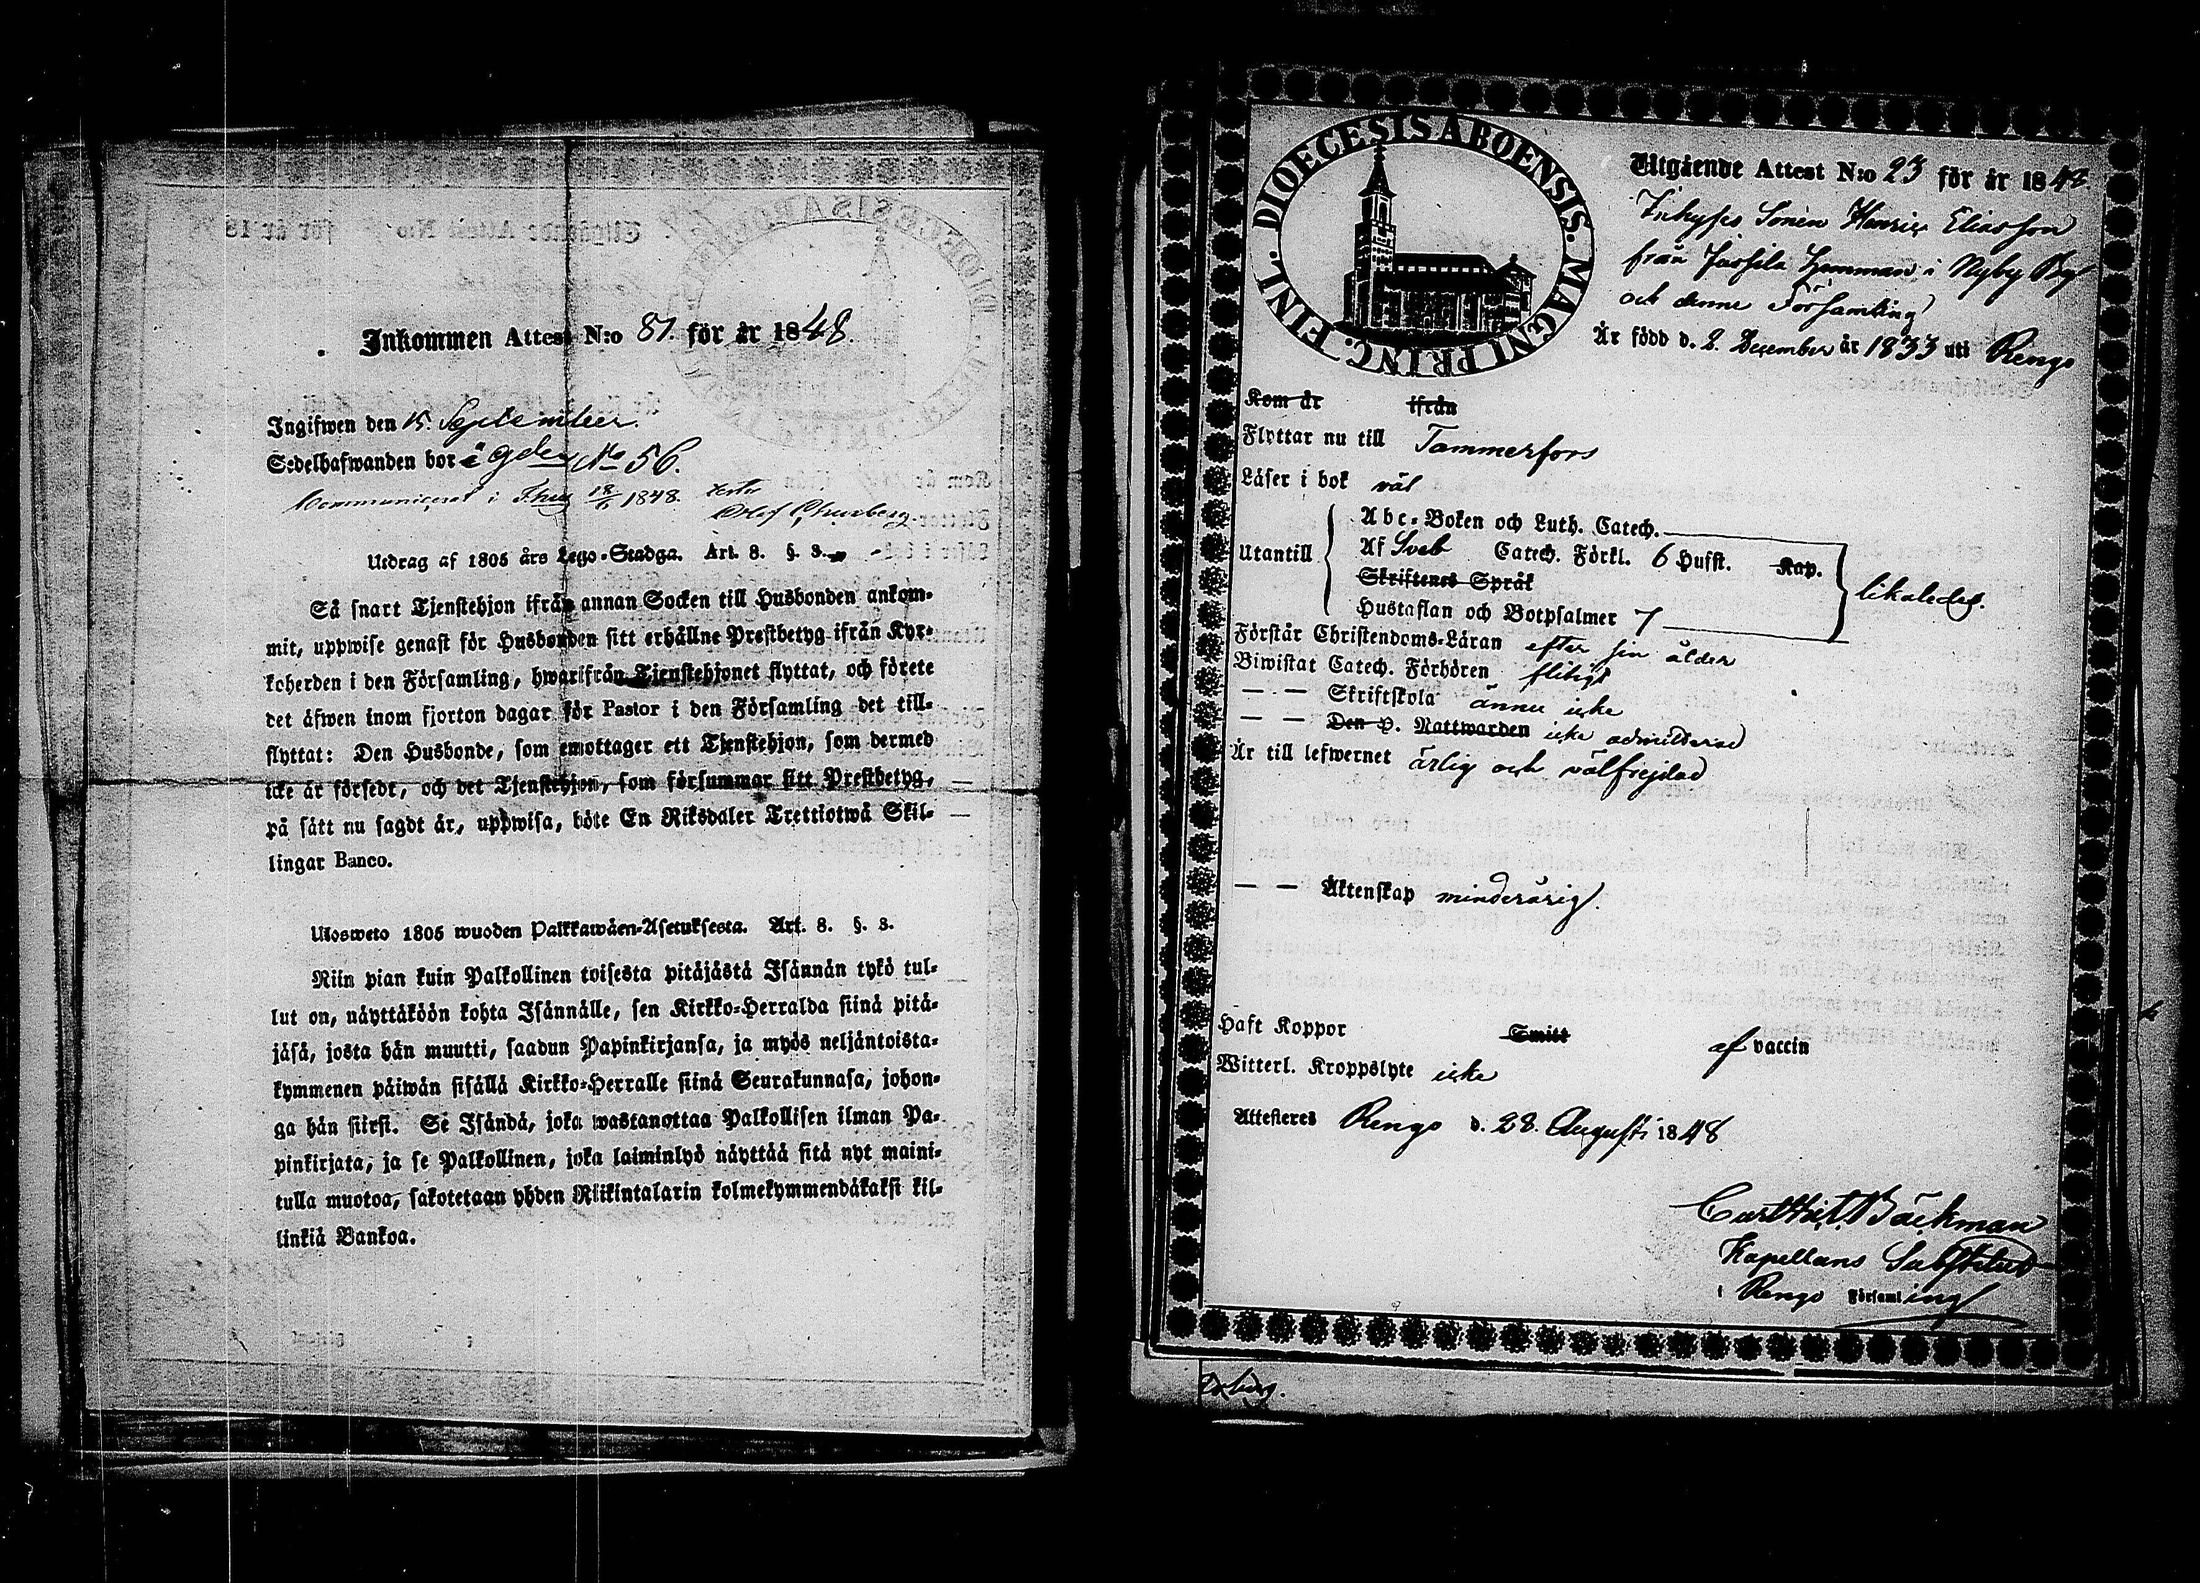 Inkommen Attest N:o 81. för år 1848.
Ingifwen den 15. September.
Sedelhafwanden bor å gden No 56.
Communicerat i 1848.
Utdrag af 1805 års Lego-Stadga. Art. 8. §. 3.
Så snart Tjenstehjon ifrån annan Socken till Husbonden ankom-
mit, uppwise genast för Husbonden sitt erhållne Prestbetyg ifrån Kyr-
koherden i den Församling, hwarifrån Tjenstehjonet flyttat, och förete
det äfwen inom fjorton dagar för Pastor i den Församling det till-
flyttat: Den Husbonde, som emottager ett Tjenstehjon, som dermed
icke är försedt, och det Tjenstehjon, som försummar sitt Prestbetyg,
på sätt nu sagdt är, uppwisa, böte En Riksdaler Trettiotwå Skil-
lingar Banco.
Ulosweto 1805 wuoden Palkkawäen-Asetuksesta. Art. 8. §. 3.
Niin pian kuin Palkollinen toisesta pitäjästä Isännän tykö tul-
lut on, näyttäköön kohta Isännälle, sen Kirkko-Herralda siinä pitä-
jäsä, josta hän muutti, saadun Papinkirjansa, ja myös neljäntoista-
kymmenen päiwän sisällä Kirkko-Herralle siinä Seurakunnasa, johon-
ga hän siirsi. Se Isändä, joka wastanottaa Palkollisen ilman Pa-
pinkirjata, ja se Palkollinen, joka laiminlyö näyttää sitä nyt maini-
tulla muotoa, sakotetaan yhden Riikintalarin kolmekymmendäkaksi kil-
linkiä Bankoa.
DIOECESIS ABOENSIS. MAGNI PRINC. FINL.
Utgående Attest N:o 23 för år 1848.
Inhyses Sonen Henric Eliasson
från Jussila Hemman i Nyby By
och denne Församling
Är född d. 2. December år 1833 uti Rengo
Kom år ifrån
Flyttar nu till Tammerfors
Läser i bok väl
Utantill
Abc-Boken och Luth. Catech.
Af Sveb Catech. Förkl. 6 Hufst. Kap.
Skriftenes Språk
Hustaflan och Botpsalmer 7
likaledes.
Förstår Christendoms-Läran efter sin ålder
Biwistat Catech. Förhören flitigt
— — Skriftskola ännu icke
— — Den H. Nattwarden icke admitterad
Är till lefwernet ärlig och välfrejdad
— — Äktenskap minderårig.
Haft Koppor Smitt af vaccin
Witterl. Kroppslyte icke
Attesteras Rengo d. 28. Augusti 1848
Bäckman
Kapellans Substitut
i Rengo Församling